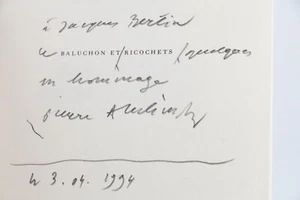 à Jacques Bertin
ce BALUCHON ET RICOCHETS / quelques
en hommage
pierre Alechinsky
le 3.04.1994